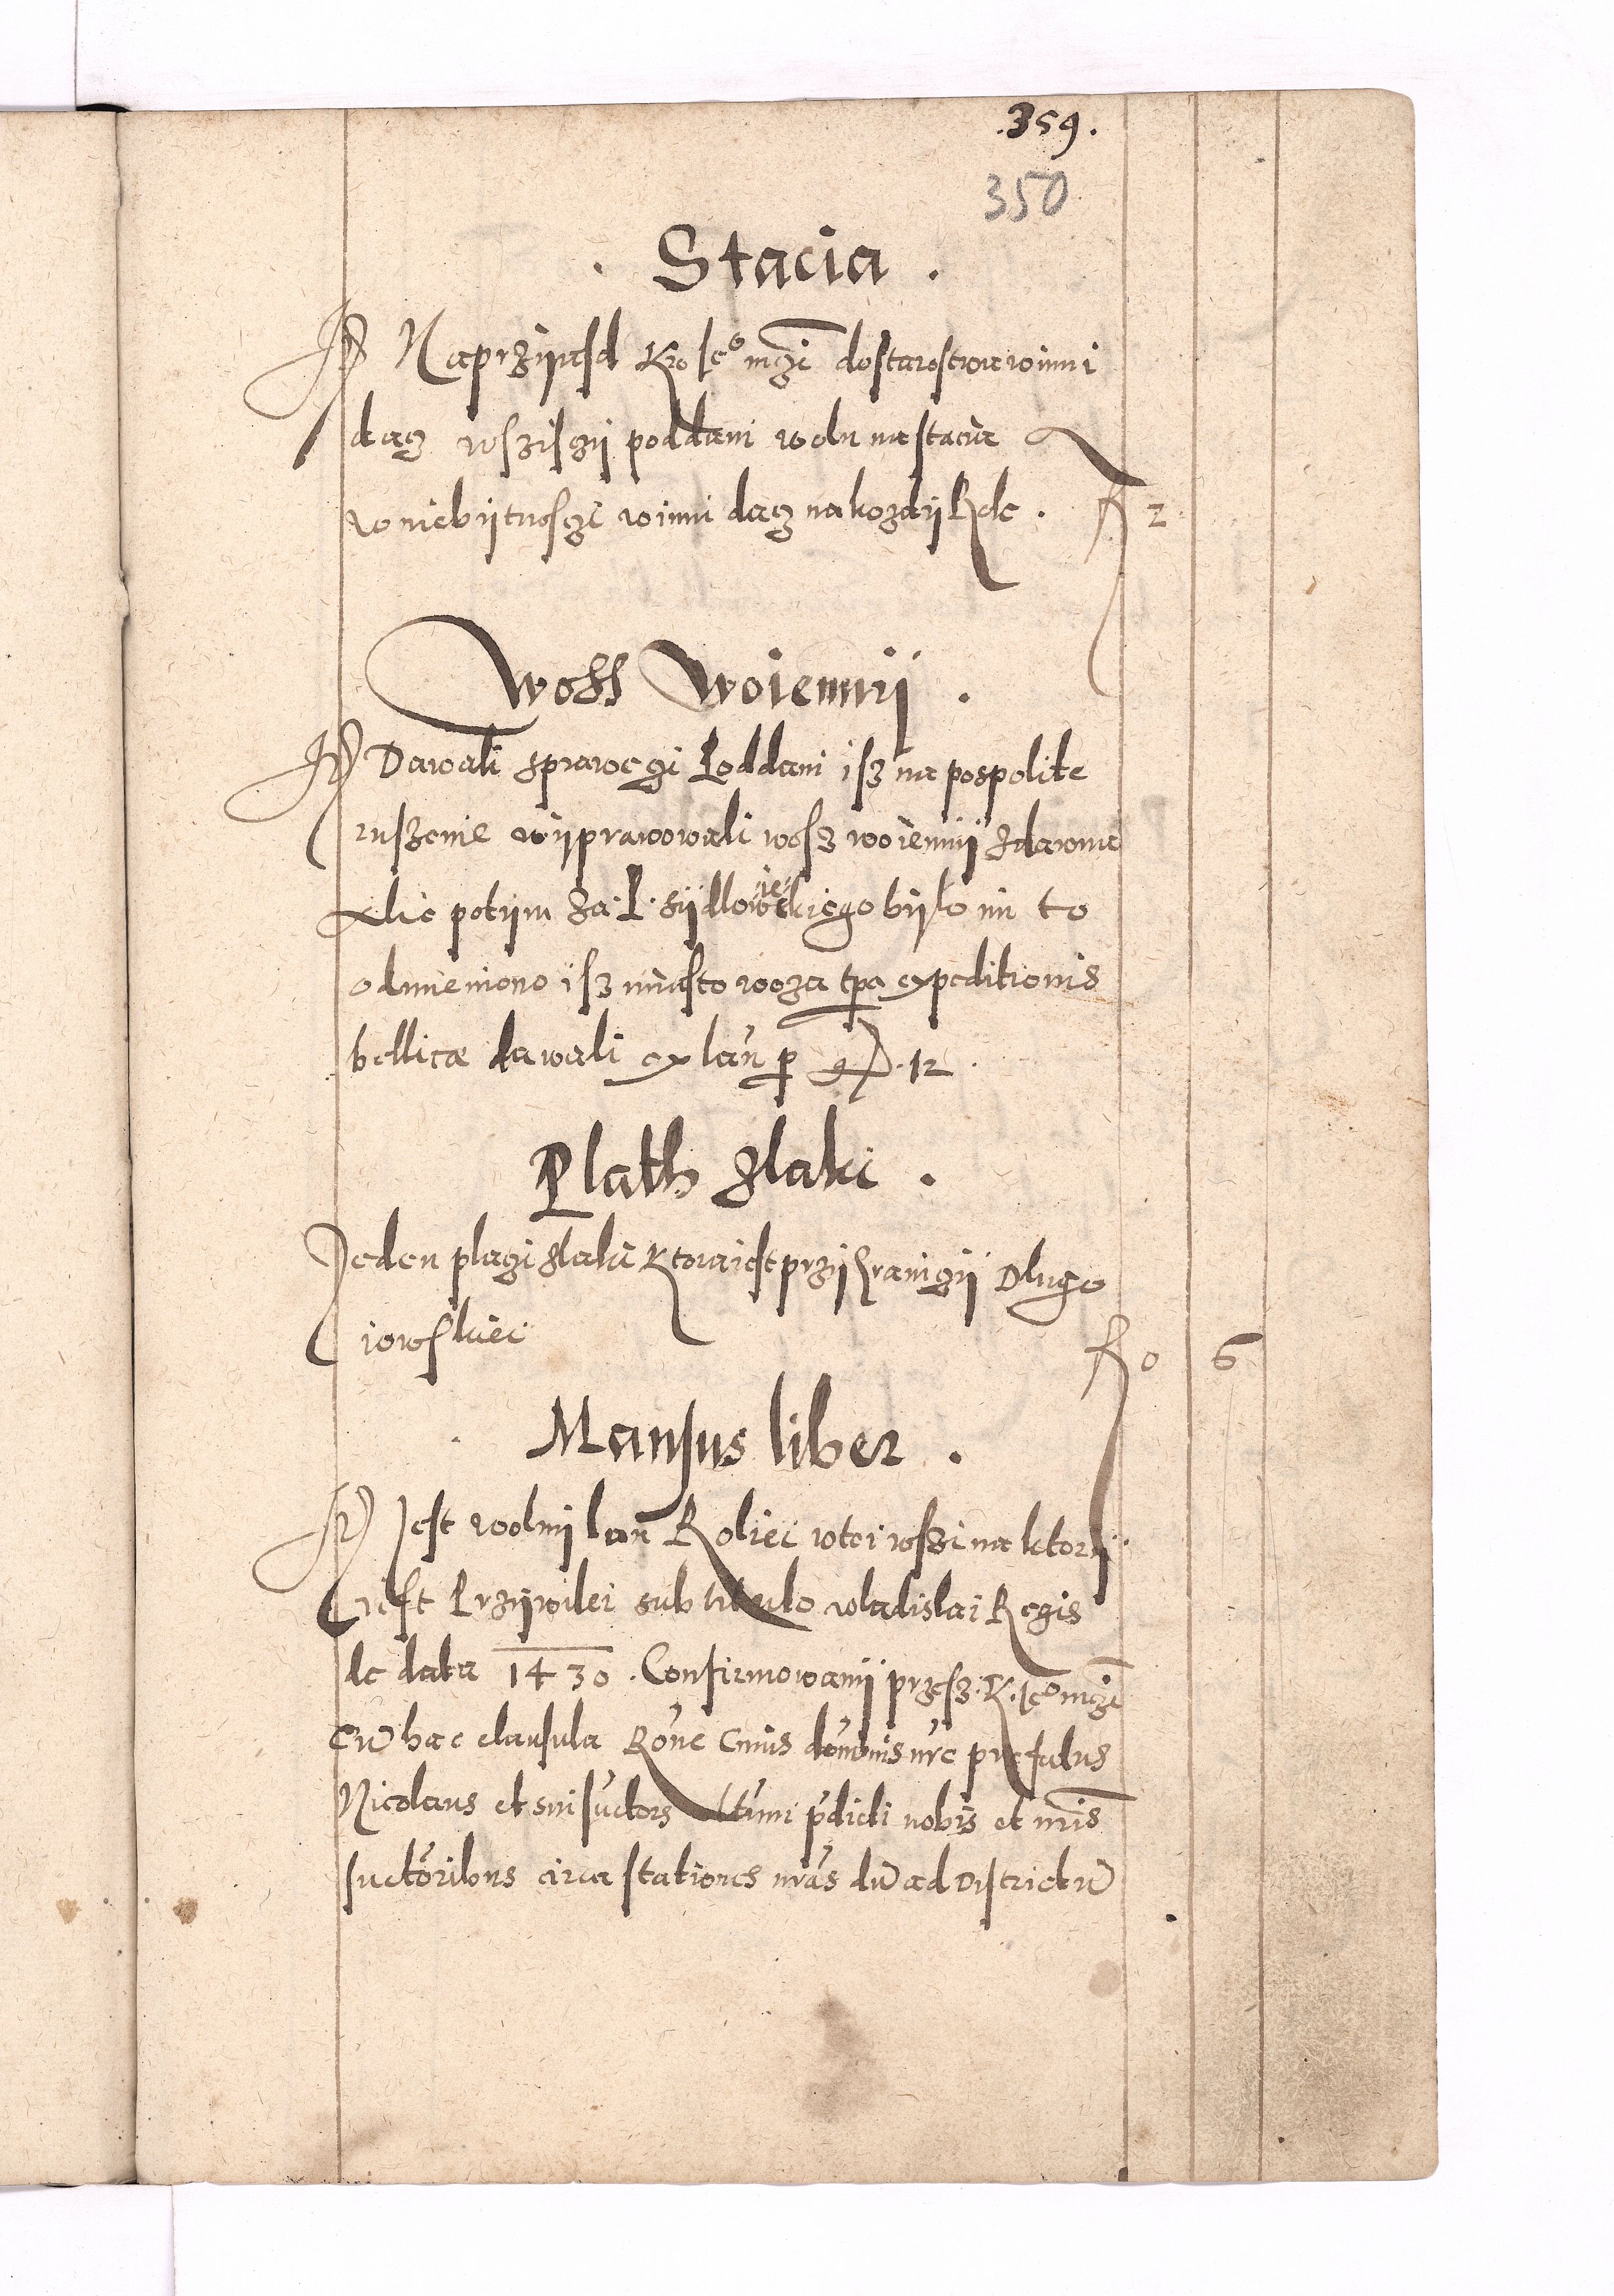 .359.
350
. Stacia .
It Naprzÿasd Kro Ie° mczi dostarostwa winni
dacz wszisczÿ poddani wolu na stacia
w niebÿtnosczi winni dacz nakozdÿ Rok . R 2
Woss Woiennÿ .
It Dawali sprawe czi Poddani isz na pospolite
ruszenie wÿprawowali wosz woiennÿ zdawna
Alie potÿm za P. Sÿdlowieckiego bÿlo im to
odmieniono isz miasto woza tpe expeditionis
bellicæ dawali ex lan p gr 12
Plath zlaki .
Jeden placzi zlaki ktora iest przÿ Granigÿ Dlugo
iowskiei R 0 6
Mansus liber .
It Jest wolnÿ lan Roliei wtei wszi na ktorÿ
iest Przÿwilei sub titulo wladislai Regis
de data 1430 . Confirmowanÿ przesz K. Ie° mczi
Cu hac clausula Rone Cuius donnis nre prefatus
Nicolaus et sui suctors ltimi pdicti nobis et nris
suctoribus circa stationes nras du ad Districtu